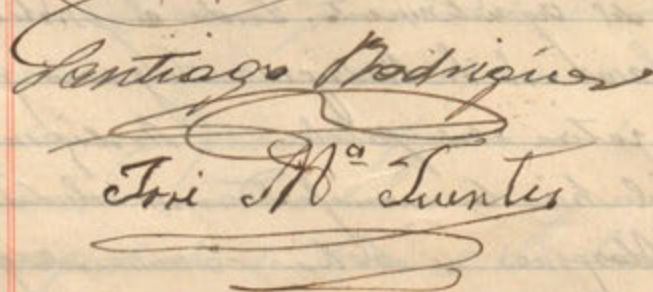 Santiago Rodriguez
José Mª Fuentes